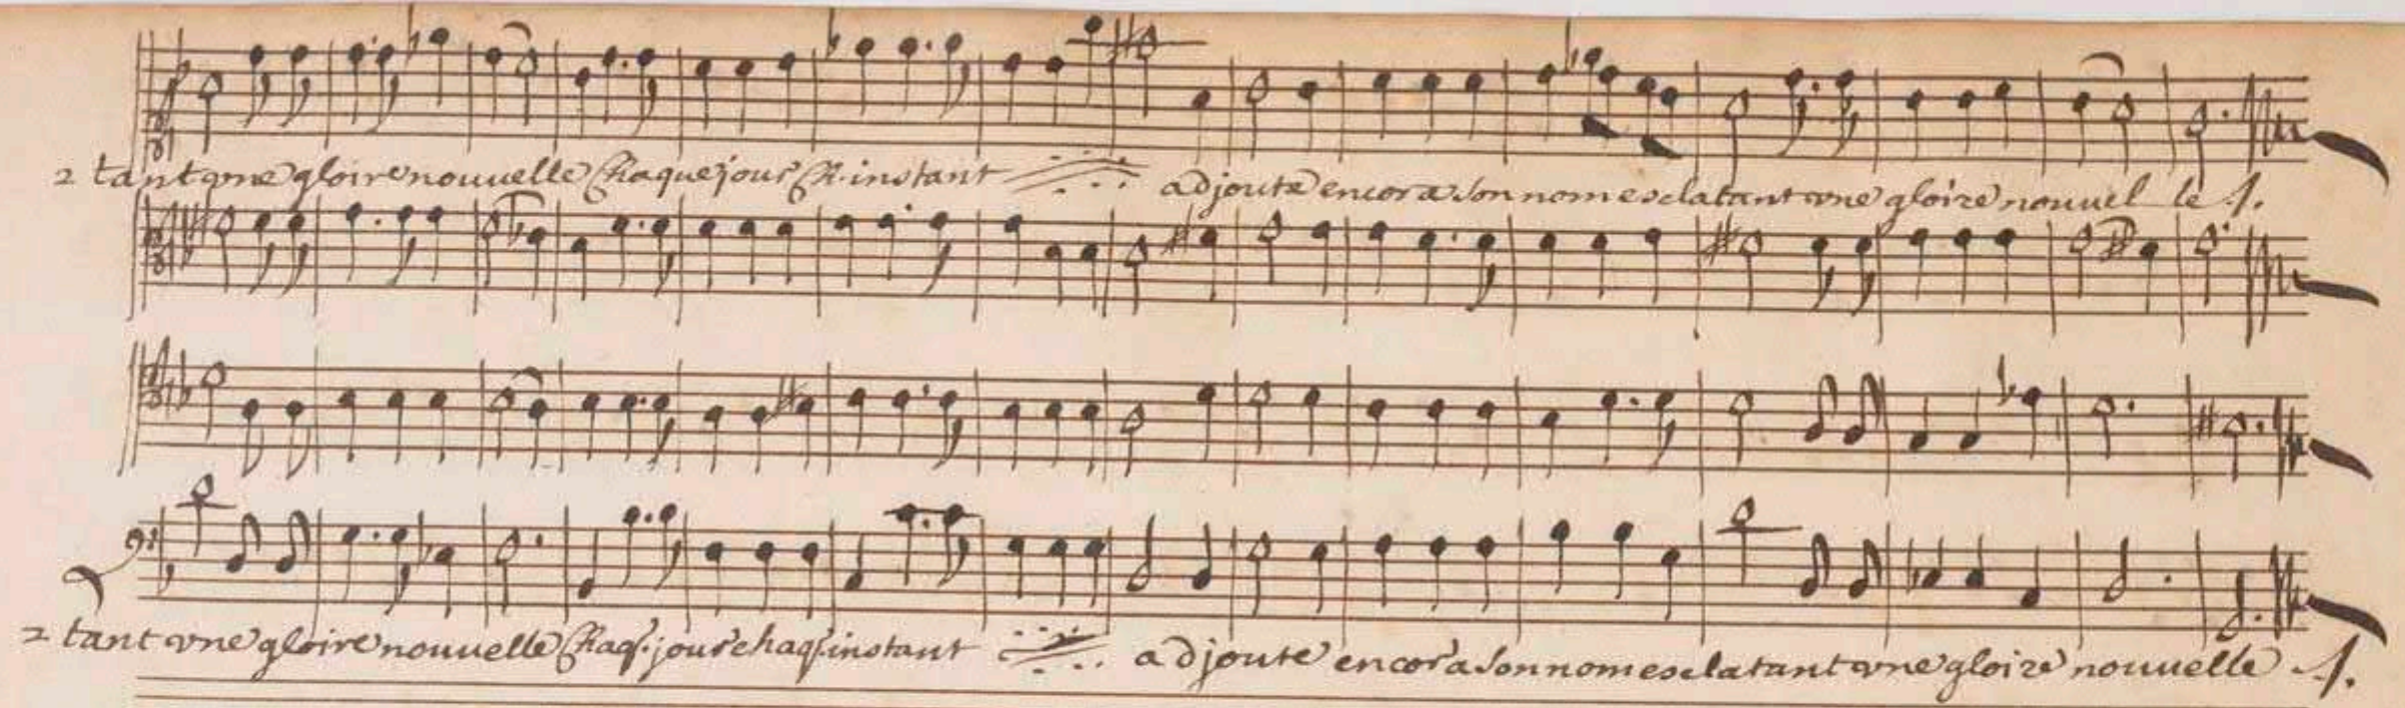 2 tant vne gloire nouuelle Chaque jour Ch. instant adjoute encor a son nom esclatant vne gloire nouuel le
2 tant vne gloire nouuelle Chaq. jour chaq. instant adjoute encor a son nom esclatant vne gloire nouuelle